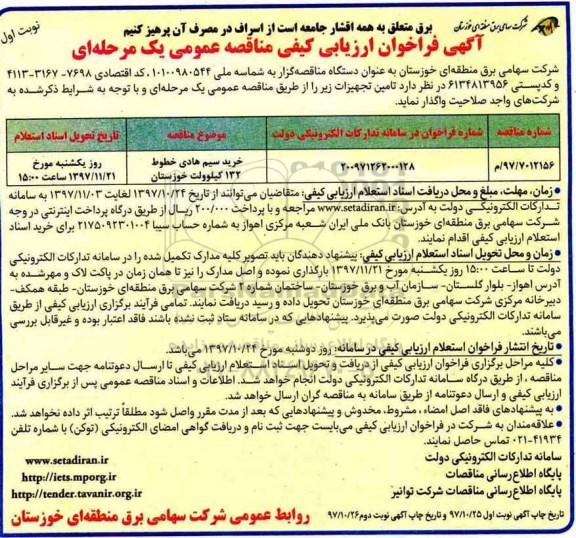 نوبت اول
برق متعلق به همه اقشار جامعه است از اسراف در مصرف آن پرهیز کنیم
شرکت سهامی برق منطقه‌ای خوزستان
آگهی فراخوان ارزیابی کیفی مناقصه عمومی یک مرحله‌ای
شرکت سهامی برق منطقه‌ای خوزستان به عنوان دستگاه مناقصه‌گزار به شناسه ملی ۱۰۱۰۰۹۸۰۵۴۴، کد اقتصادی ۷۶۹۸-۳۱۶۷-۴۱۱۳
و کدپستی ۶۱۳۴۸۱۳۹۵۶ در نظر دارد تامین تجهیزات زیر را از طریق مناقصه عمومی یک مرحله‌ای و با توجه به شرایط ذکرشده به
شرکت‌های واجد صلاحیت واگذار نماید.
شماره مناقصه شماره فراخوان در سامانه تدارکات الکترونیکی دولت موضوع مناقصه تاریخ تحویل اسناد استعلام
۹۷/۷۰۱۲۱۵۶/م ۲۰۰۹۷۱۲۶۲۰۰۰۱۲۸ خرید سیم هادی خطوط روز یکشنبه مورخ
۱۳۲ کیلوولت خوزستان ۱۳۹۷/۱۱/۲۱ ساعت ۱۵:۰۰
● زمان، مهلت، مبلغ و محل دریافت اسناد استعلام ارزیابی کیفی: متقاضیان می‌توانند از تاریخ ۱۳۹۷/۱۰/۲۴ لغایت ۱۳۹۷/۱۱/۰۳ به سامانه
تدارکات الکترونیکی دولت به آدرس: www.setadiran.ir مراجعه و با پرداخت ۲۰۰/۰۰۰ ریال از طریق درگاه پرداخت اینترنتی در وجه
شرکت سهامی برق منطقه‌ای خوزستان بانک ملی ایران شعبه مرکزی اهواز به شماره حساب سیبا ۲۱۷۵۰۹۲۳۰۱۰۰۴ برای خرید اسناد
استعلام ارزیابی کیفی اقدام نمایند.
● زمان و محل تحویل اسناد استعلام ارزیابی کیفی: پیشنهاد دهندگان باید تصویر کلیه مدارک تکمیل شده را در سامانه تدارکات الکترونیکی
دولت تا ساعت ۱۵:۰۰ روز یکشنبه مورخ ۱۳۹۷/۱۱/۲۱ بارگذاری نموده و اصل مدارک را نیز تا همان زمان در پاکت لاک و مهرشده به
آدرس اهواز- بلوار گلستان- سازمان آب و برق خوزستان- ساختمان شماره ۲ شرکت سهامی برق منطقه‌ای خوزستان- طبقه همکف-
دبیرخانه مرکزی شرکت سهامی برق منطقه‌ای خوزستان تحویل داده و رسید دریافت نمایند. تمامی فرآیند برگزاری ارزیابی کیفی از طریق
سامانه تدارکات الکترونیکی دولت صورت می‌پذیرد. پیشنهادهایی که در سامانه ستاد ثبت نشده باشند فاقد اعتبار بوده و غیرقابل بررسی
می‌باشند.
● تاریخ انتشار فراخوان استعلام ارزیابی کیفی در سامانه: روز دوشنبه مورخ ۱۳۹۷/۱۰/۲۴ می‌باشد.
● کلیه مراحل برگزاری فراخوان ارزیابی کیفی از دریافت و تحویل اسناد استعلام ارزیابی کیفی تا ارسال دعوتنامه جهت سایر مراحل
مناقصه، از طریق درگاه سامانه تدارکات الکترونیکی دولت انجام خواهد شد. اطلاعات و اسناد مناقصه عمومی پس از برگزاری فرآیند
ارزیابی کیفی و ارسال دعوتنامه از طریق سامانه به مناقصه گران ارسال خواهد شد.
● به پیشنهادهای فاقد اصل امضاء، مشروط، مخدوش و پیشنهادهایی که بعد از مدت مقرر واصل شود مطلقاً ترتیب اثر داده نخواهد شد.
● علاقه‌مندان به شرکت در فراخوان ارزیابی کیفی می‌بایست جهت ثبت نام و دریافت گواهی امضای الکترونیکی (توکن) با شماره تلفن
۰۲۱-۴۱۹۳۴ تماس حاصل نمایند.
سامانه تدارکات الکترونیکی دولت www.setadiran.ir
پایگاه اطلاع‌رسانی مناقصات http://iets.mporg.ir
پایگاه اطلاع‌رسانی مناقصات شرکت توانیر http://tender.tavanir.org.ir
تاریخ چاپ آگهی نوبت اول ۹۷/۱۰/۲۵ و تاریخ چاپ آگهی نوبت دوم ۹۷/۱۰/۲۶
روابط عمومی شرکت سهامی برق منطقه‌ای خوزستان